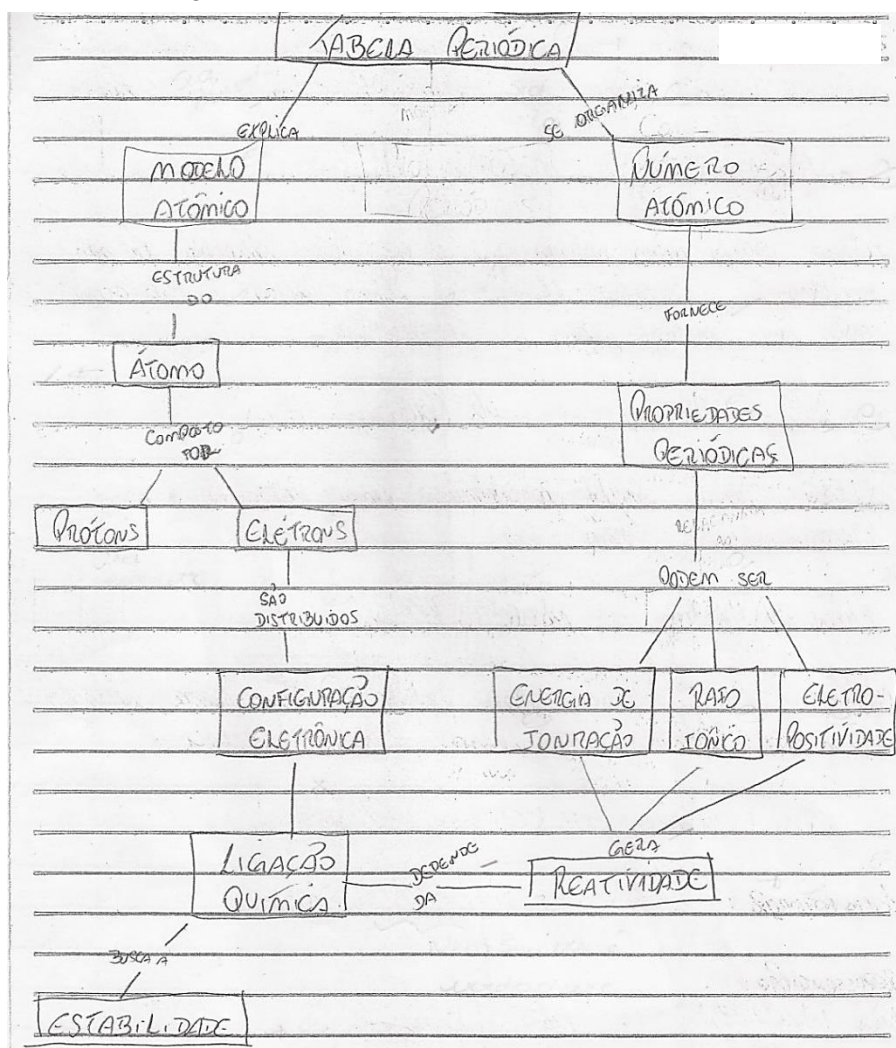 TABELA PERIÓDICA
EXPLICA
SE ORGANIZA
MODELO
ATÔMICO
NÚMERO
ATÔMICO
ESTRUTURA
DO
FORNECE
ÁTOMO
PROPRIEDADES
PERIÓDICAS
COMPOSTO
POR
PRÓTONS
ELÉTRONS
PODEM SER
SÃO
DISTRIBUIDOS
CONFIGURAÇÃO
ELETRÔNICA
ENERGIA DE
IONIZAÇÃO
RAIO
IÔNICO
ELETRO-
POSITIVIDADE
GERA
LIGAÇÃO
QUÍMICA
DEPENDE
DA
REATIVIDADE
BUSCA A
ESTABILIDADE